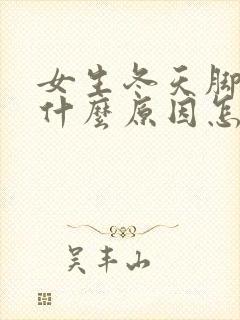 女生冬天脚
什麼原因怎
吴丰山